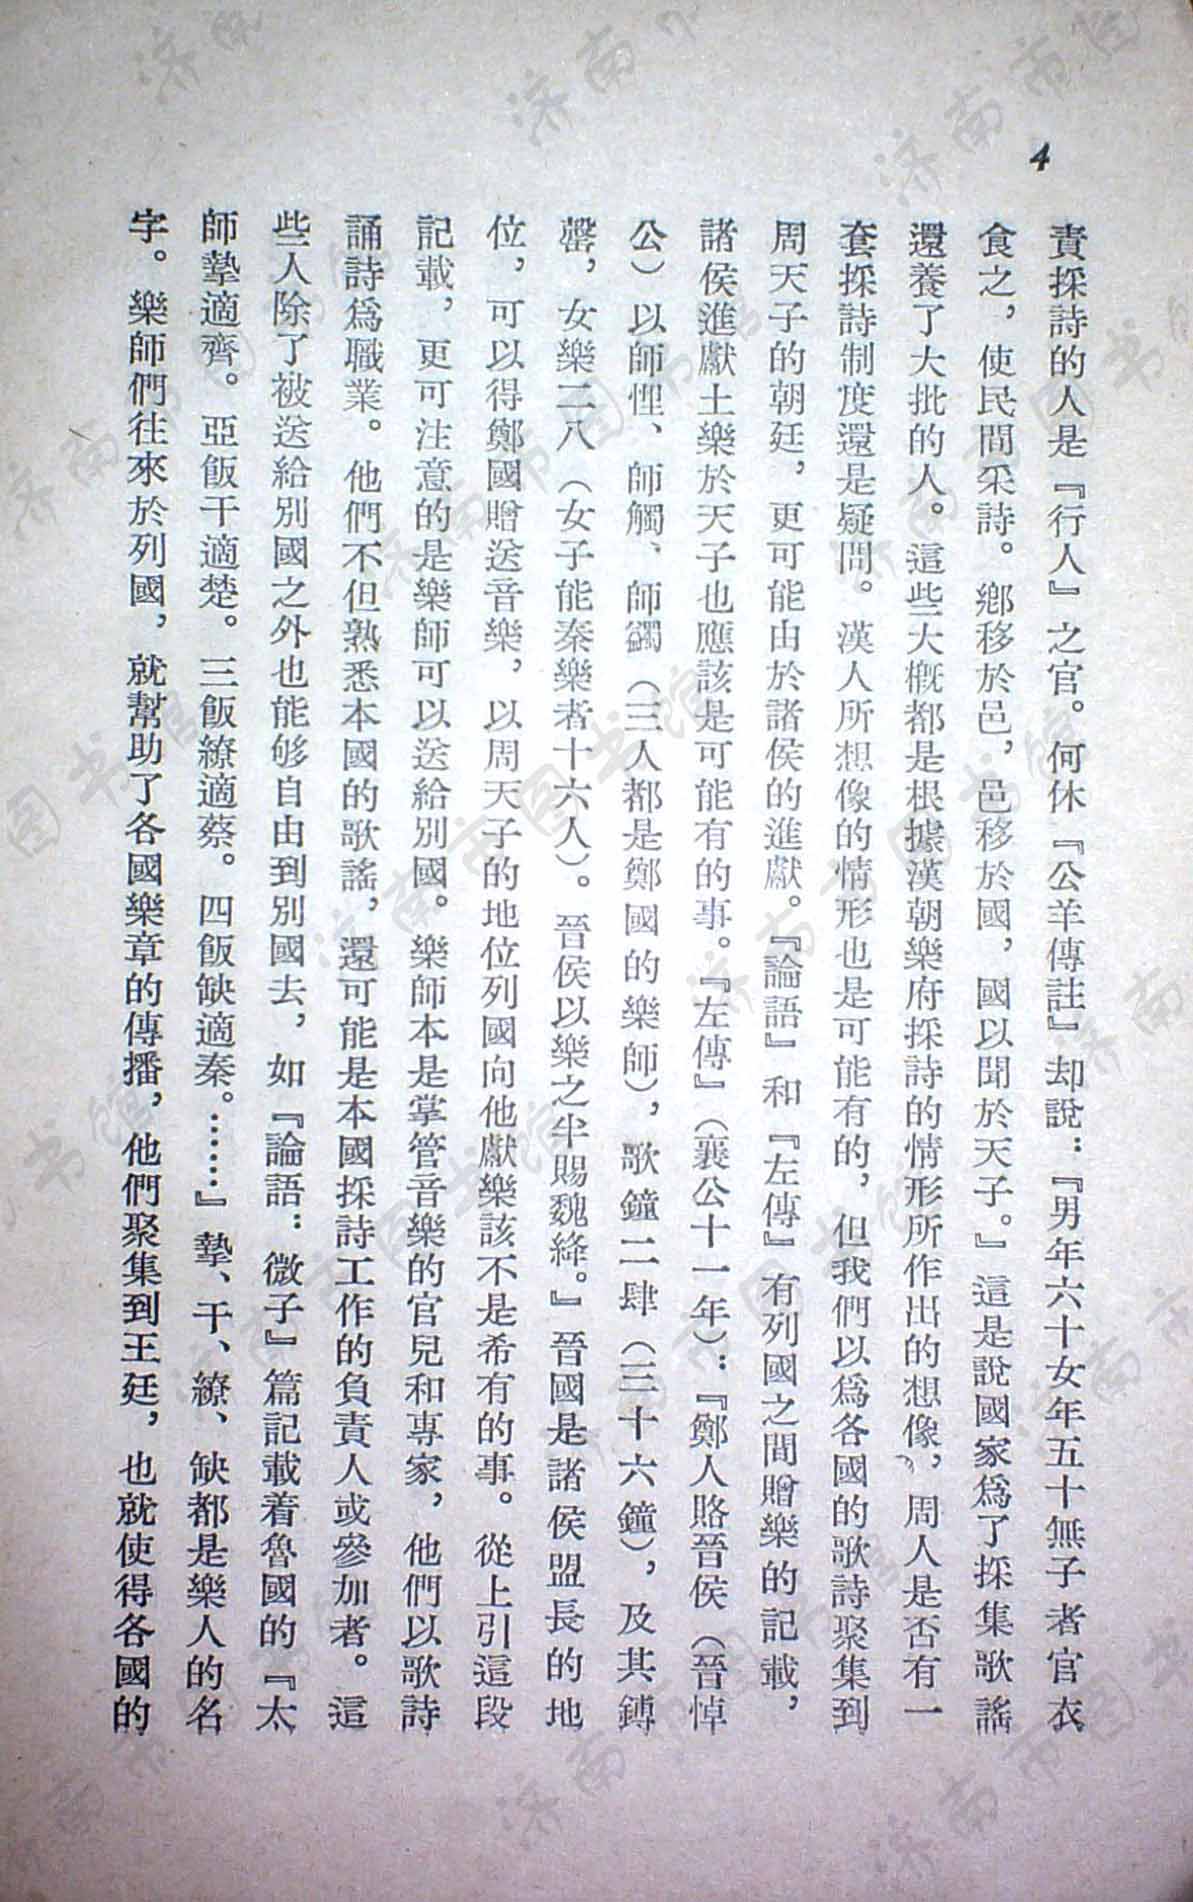 4
責採詩的人是『行人』之官。何休『公羊傳註』却說：『男年六十女年五十無子者官衣
食之，使民間采詩。鄉移於邑，邑移於國，國以聞於天子。』這是說國家爲了採集歌謠
還養了大批的人。這些大概都是根據漢朝樂府採詩的情形所作出的想像，周人是否有一
套採詩制度還是疑問。漢人所想像的情形也是可能有的，但我們以爲各國的歌詩聚集到
周天子的朝廷，更可能由於諸侯的進獻。『論語』和『左傳』有列國之間贈樂的記載，
諸侯進獻土樂於天子也應該是可能有的事。『左傳』（襄公十一年）：『鄭人賂晉侯（晉悼
公）以師悝、師觸、師蠲（三人都是鄭國的樂師），歌鐘二肆（三十六鐘），及其鎛
罄，女樂二八（女子能奏樂者十六人）。晉侯以樂之半賜魏絳。』晉國是諸侯盟長的地
位，可以得鄭國贈送音樂，以周天子的地位列國向他獻樂該不是希有的事。從上引這段
記載，更可注意的是樂師可以送給別國。樂師本是掌管音樂的官兒和專家，他們以歌詩
誦詩爲職業。他們不但熟悉本國的歌謠，還可能是本國採詩工作的負責人或參加者。這
些人除了被送給別國之外也能够自由到別國去，如『論語：微子』篇記載着魯國的『太
師摯適齊。亞飯干適楚。三飯繚適蔡。四飯缺適秦。……』摯、干、繚、缺都是樂人的名
字。樂師們往來於列國，就幫助了各國樂章的傳播，他們聚集到王廷，也就使得各國的
济南市图书馆